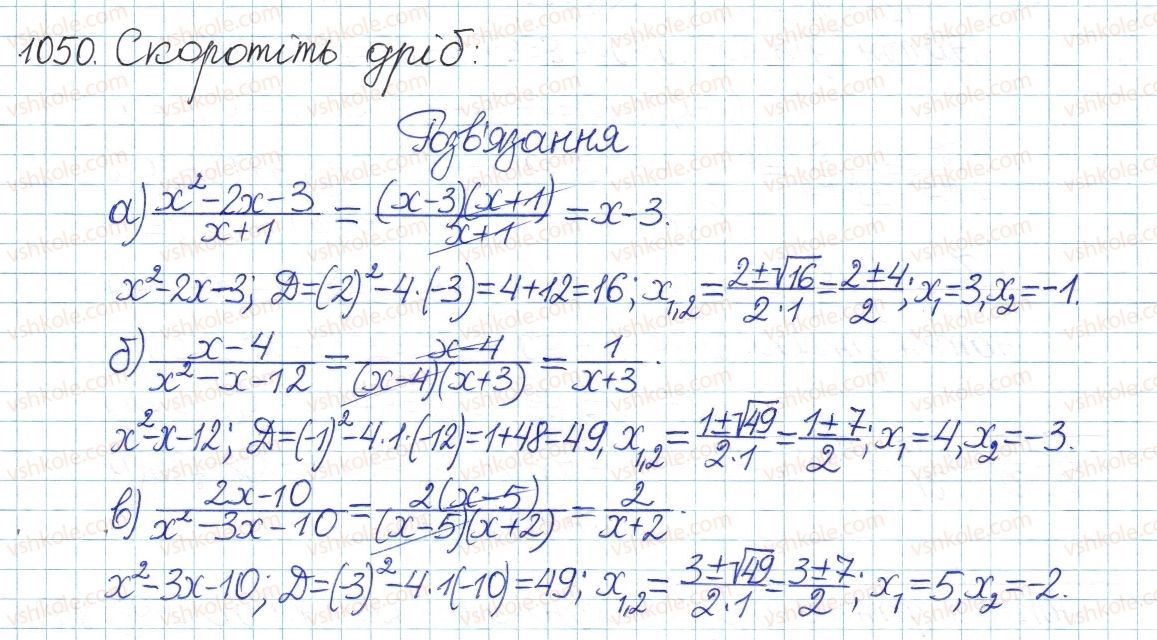 1050. Скоротіть дріб:
Розв'язання
а) (x² - 2x - 3)/(x + 1) = ((x - 3)(x + 1))/(x + 1) = x - 3.
x² - 2x - 3; Д = (-2)² - 4 · (-3) = 4 + 12 = 16; x₁,₂ = (2 ± √16)/(2 · 1) = (2 ± 4)/2; x₁ = 3, x₂ = -1.
б) (x - 4)/(x² - x - 12) = (x - 4)/((x - 4)(x + 3)) = 1/(x + 3).
x² - x - 12; Д = (-1)² - 4 · 1 · (-12) = 1 + 48 = 49, x₁,₂ = (1 ± √49)/(2 · 1) = (1 ± 7)/2; x₁ = 4, x₂ = -3.
в) (2x - 10)/(x² - 3x - 10) = (2(x - 5))/((x - 5)(x + 2)) = 2/(x + 2).
x² - 3x - 10; Д = (-3)² - 4 · 1(-10) = 49; x₁,₂ = (3 ± √49)/(2 · 1) = (3 ± 7)/2; x₁ = 5, x₂ = -2.